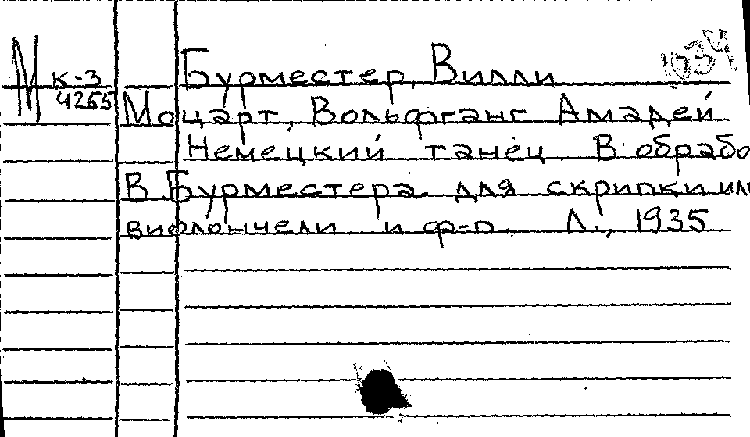 М к-3
4265
Бурместер, Вилли
Моцарт, Вольфганг Амадей
Немецкий танец В обрабо
В. Бурместера для скрипки ил
виолончели и ф-п. Л., 1935